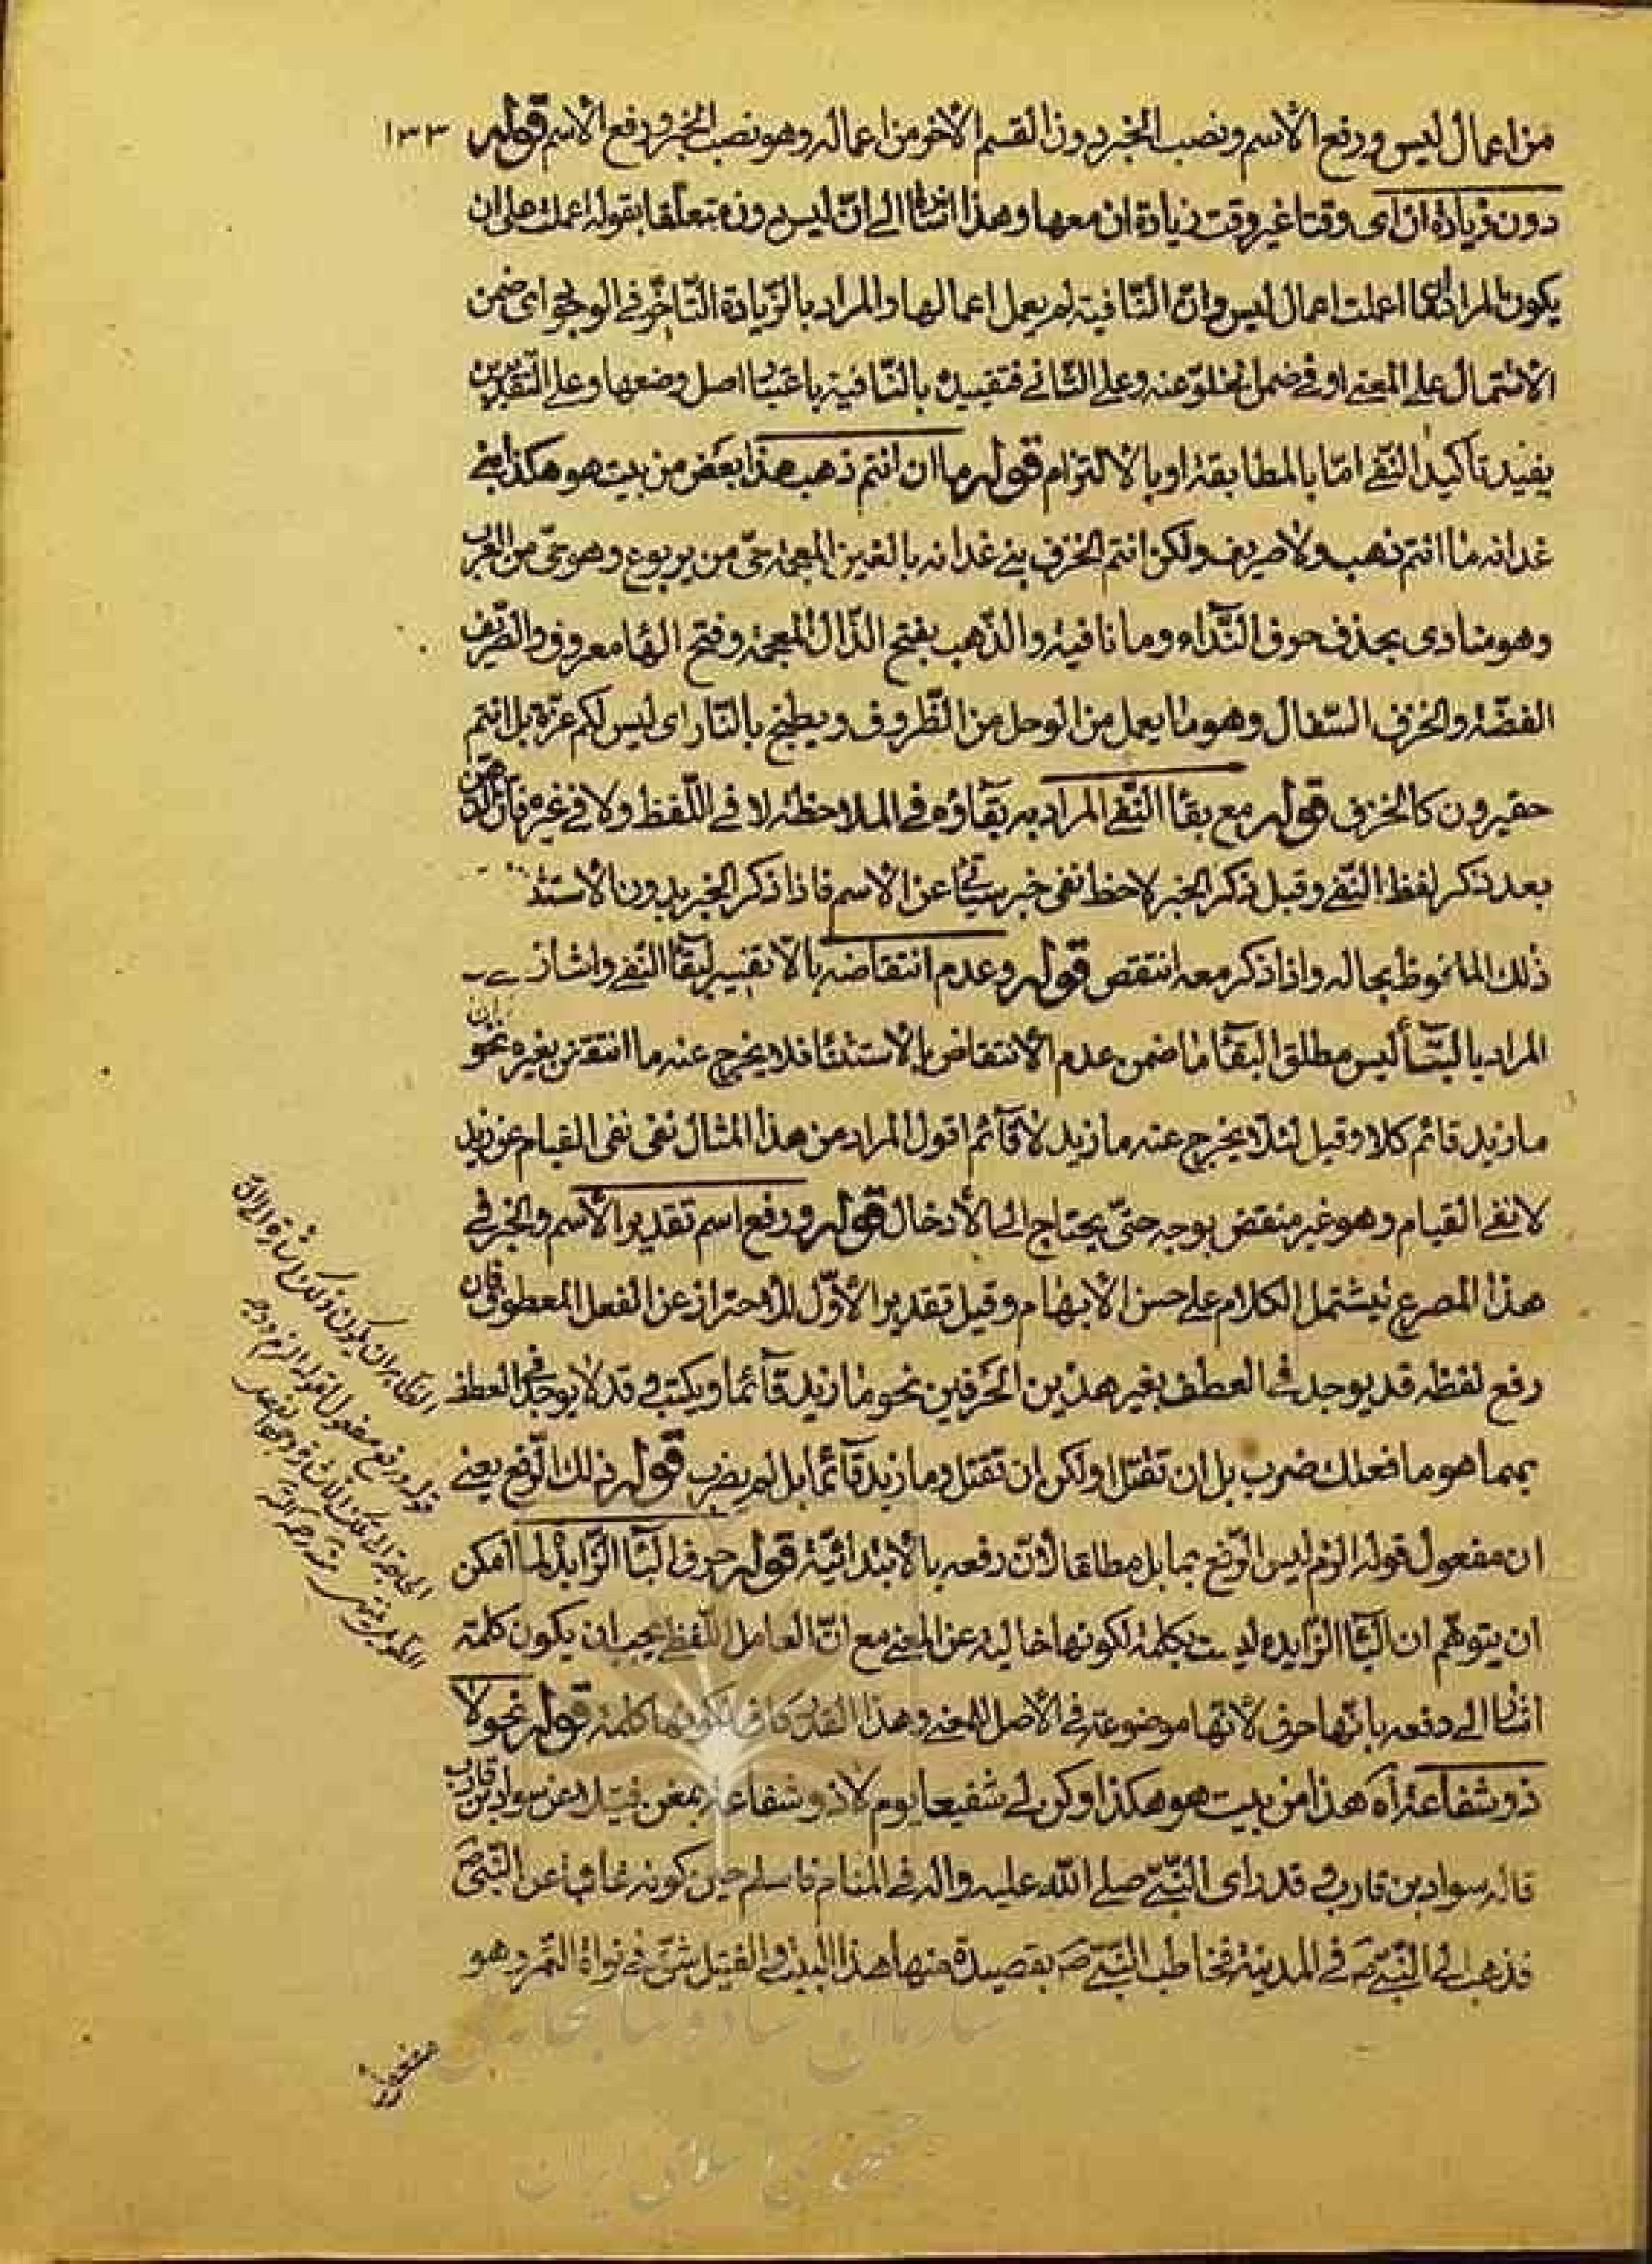 من اعمال ليس ورفع الاسم ونصب الخبر دون القسم الاخر من اعماله وهو نصب الخبر ورفع الاسم قوله ١٣٣
دون زيادة ان اى وقتا غير وقت زيادة ان معها وهذا اشارة الى انّ ليس دون متعلّقا بقوله اعملت على ان
يكون المراد انّها اعملت اعمال ليس وان النّافية لم يعمل اعمالها والمراد بالزّيادة التّاخّر فى الوجود اى ضمن
الاشتمال على المعنى او فى ضمن الخلوّ عنه وعلى الثّانى فتقييده بالنّافية باعتبار اصل وضعها وعلى التّقديرين
يفيد تاكيد النّفى امّا بالمطابقة او بالالتزام قوله ما ان انتم ذهب هذا بعض من بيت هو هكذا بنى
غدانه ما ان انتم ذهب ولا صريف ولكن انتم الخزف بنى غدانه بالغين المعجمة حىّ من يربوع وهو حىّ من العرب
وهو منادى بحذف حرف النّداء وما نافية والذّهب بفتح الذّال المعجمة وفتح الها معروف والصّريف
الفضّة والخزف السّفال وهو ما يعمل من الوحل من الظّروف ويطبخ بالنّار اى ليس لكم عزّة بل انتم
حقيرون كالخزف قوله مع بقا النّفى المراد به بقاؤه فى الملاحظة لا فى اللّفظ ولا فى غيره فانّ الذّهن
بعد ذكر لفظ النّفى وقبل ذكر الخبر لاحظ نفى خبر عن الاسم فاذا ذكر الخبر بدون الاستثنا
ذلك الملحوظ بحاله واذا ذكر معه انتقض قوله وعدم انتقاضه بالا تفسير لبقا النّفى واشار
المراد بالبقآ ليس مطلق البقآ ما ضمن عدم الانتقاض بالاستثنا فلا يخرج عنه ما انتقض بغيره نحو
ما زيد قائم كلا وقيل لئلّا يخرج عنه ما زيد لا قآئم اقول المراد من هذا المثال نفى نفى القيام عن زيد
لا نفى القيام وهو غير منتقض بوجه حتّى يحتاج الى الادخال قوله ورفع اسم تقدير الاسم والخبر فى
هذا المصرع ليشتمل الكلام على حسن الابهام وقيل تقدير الاوّل للاحتراز عن الفعل المعطوف فان
رفع لفظه قد يوجد فى العطف بغير هذين الحرفين نحو ما زيد قآئما ويكتب وقد لا يوجد فى العطف
بهما هو ما فعلك ضرب بل ان تقتل او لكن ان تقتل وما زيد قآئما بل لم يضرب قوله ذلك الرّفع يعنى
ان مفعول قوله الزم ليس الرّفع بما بل مطلقا لانّ رفعه بالابتدائيّة قوله حرف البآ الزّايد لما امكن
ان يتوهّم ان البآ الزّايده ليست بكلمة لكونها خالية عن المعنى مع انّ العامل اللّفظى يجب ان يكون كلمة
اشار الى دفعه بانّها حرف لانّها موضوعة فى الاصل لمعنى وهذا القدر كاف لكونها كلمة قوله نحو لا
ذو شفاعة اه هذا من بيت هو هكذا وكن لى شفيعا يوم لا ذو شفاعة بمغن فتيلا عن سواد بن قارب
قاله سواد بن قارب وقد راى النّبىّ صلى اللّه عليه واله فى المنام فاسلم حين كونه غائبا عن النّبىّ ص
فذهب الى النّبىّ ص فى المدينة فخاطب النّبىّ ص بقصيدة منها هذا البيت والفتيل شقّ فى نواة التّمر وهو